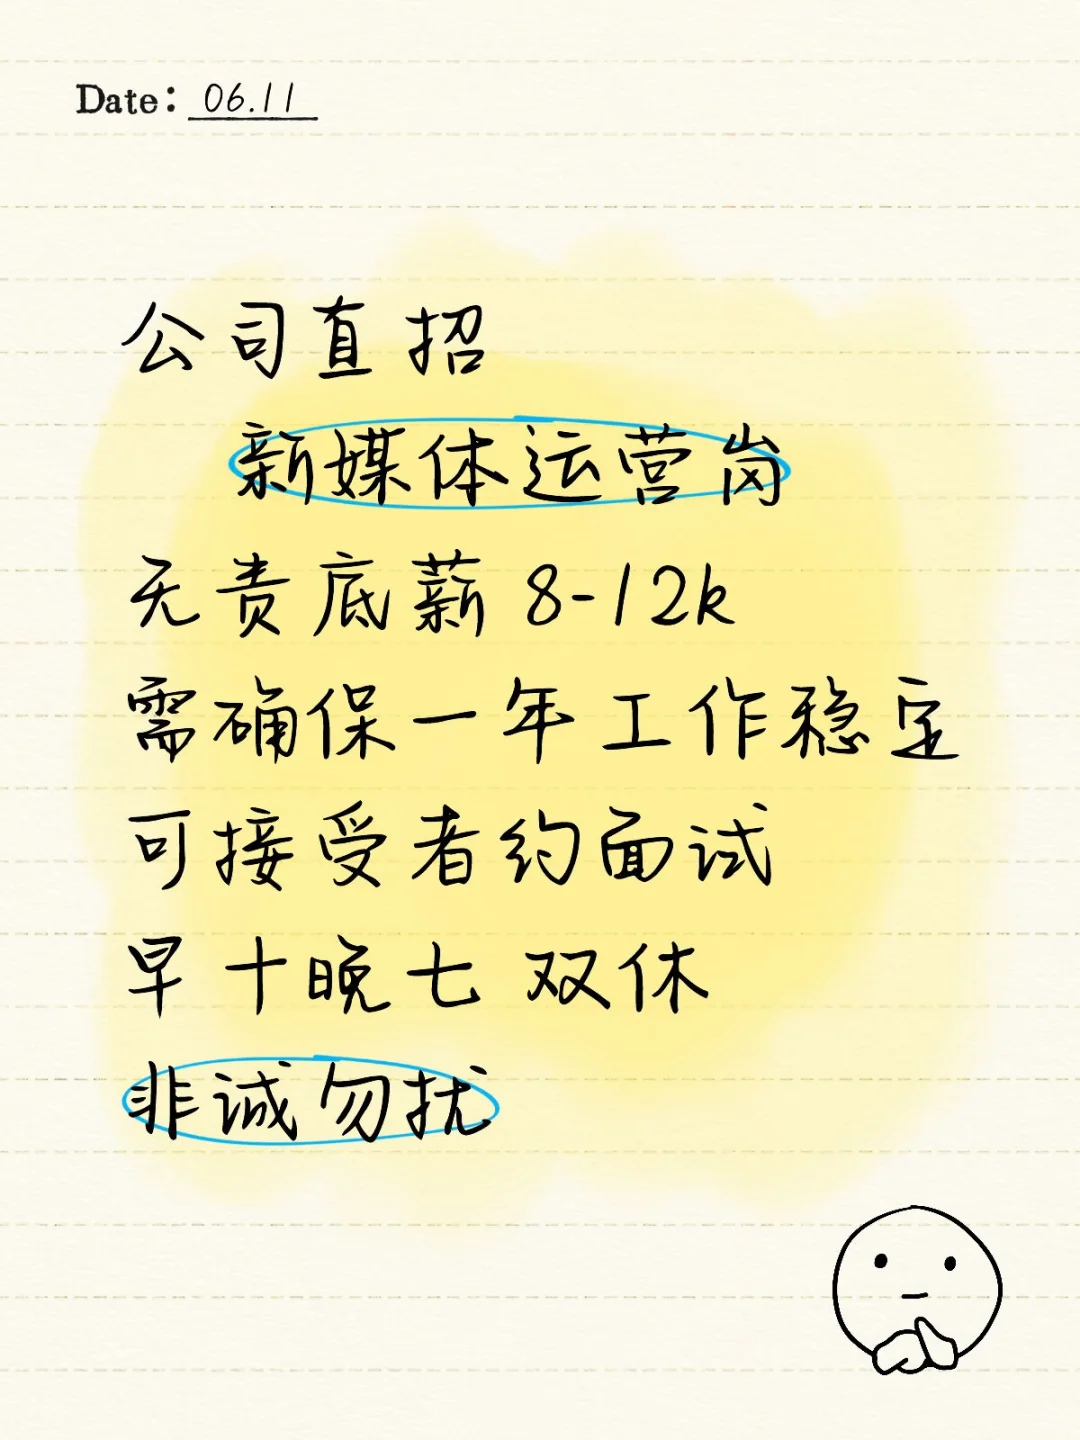 Date: 06.11
公司直招
新媒体运营岗
无责底薪 8-12k
需确保一年工作稳定
可接受者约面试
早十晚七 双休
非诚勿扰